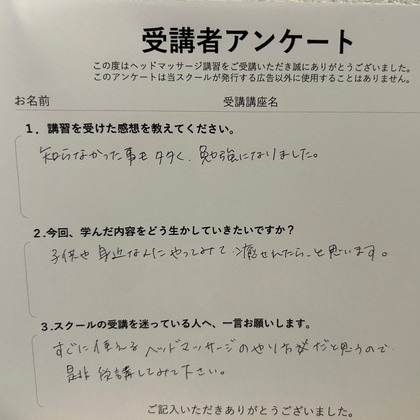 受講者アンケート
この度はヘッドマッサージ講習をご受講いただき誠にありがとうございました。
このアンケートは当スクールが発行する広告以外に使用することはありません。
お名前 受講講座名
1．講習を受けた感想を教えてください。
知らなかった事も多く、勉強になりました。
2.今回、学んだ内容をどう生かしていきたいですか？
子供や身近な人にやってみて癒せれたら、と思います。
3.スクールの受講を迷っている人へ、一言お願いします。
すぐに使えるヘッドマッサージのやり方だと思うので
是非受講してみて下さい。
ご記入いただきありがとうございました。